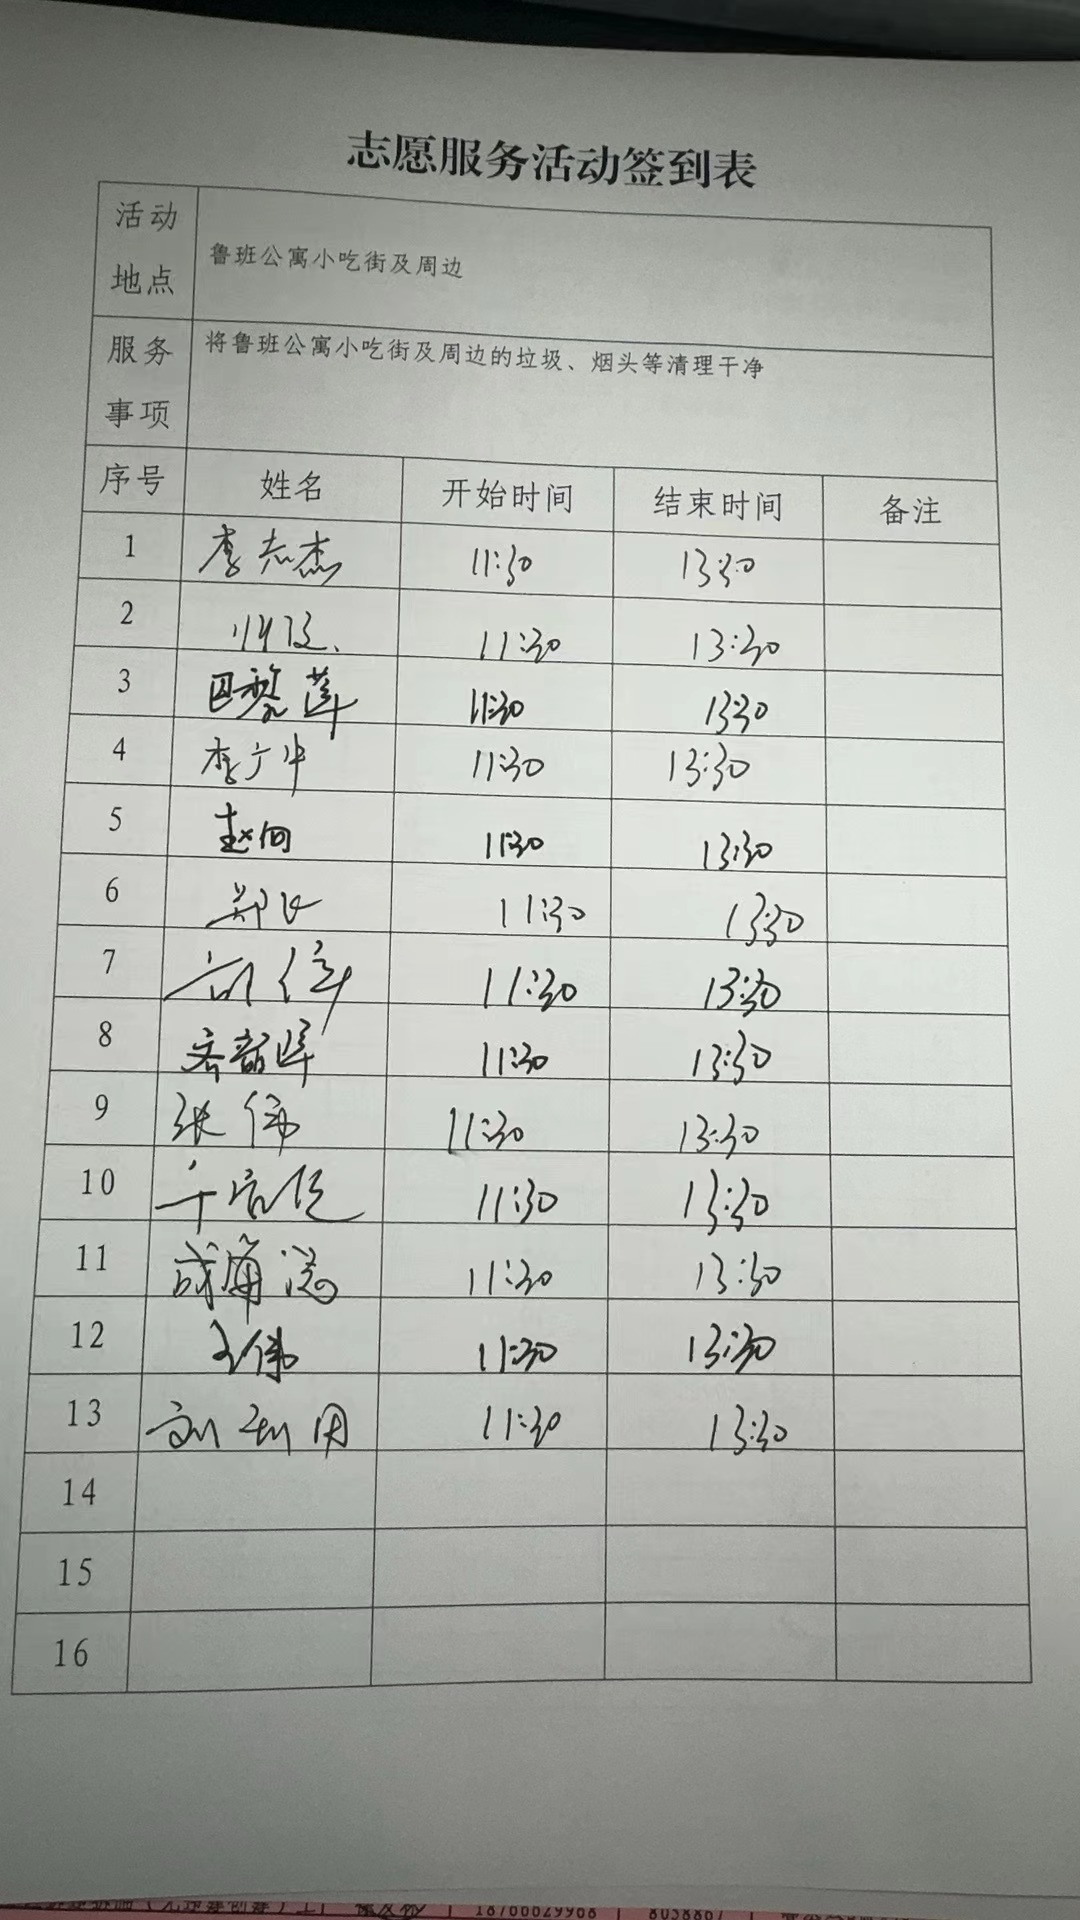 志愿服务活动签到表
活动地点 鲁班公寓小吃街及周边
服务事项 将鲁班公寓小吃街及周边的垃圾、烟头等清理干净
序号 姓名 开始时间 结束时间 备注
1 李志杰 11:30 13:30
2 11:30 13:30
3 巴黎莲 11:30 13:30
4 李广中 11:30 13:30
5 赵向 11:30 13:30
6 郑 11:30 13:30
7 11:30 13:30
8 齐韶 11:30 13:30
9 张伟 11:30 13:30
10 11:30 13:30
11 11:30 13:30
12 王伟 11:30 13:30
13 刘 11:30 13:30
14
15
16
18766629968 8058867